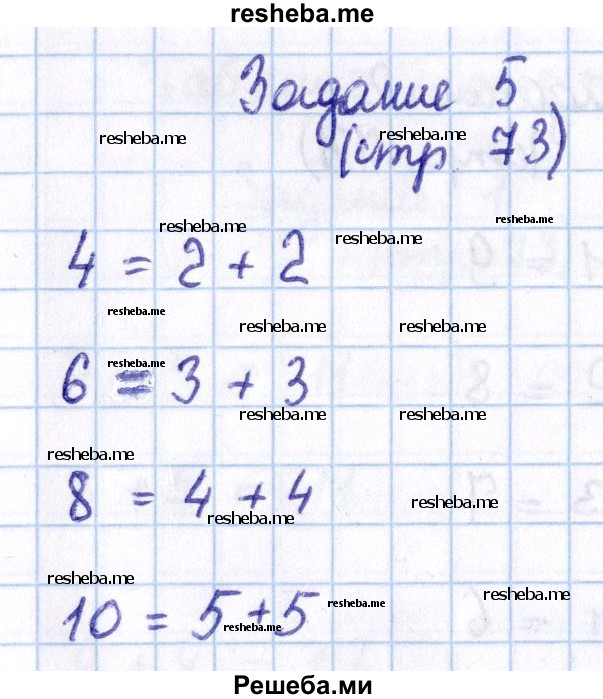 resheba.me
Задание 5
resheba.me resheba.me
(стр 73)
resheba.me resheba.me
resheba.me
4 = 2 + 2
resheba.me
resheba.me resheba.me
resheba.me
6 = 3 + 3
resheba.me resheba.me
resheba.me
8 = 4 + 4
resheba.me
resheba.me
resheba.me
resheba.me
resheba.me
10 = 5 + 5
resheba.me
Решеба.ми